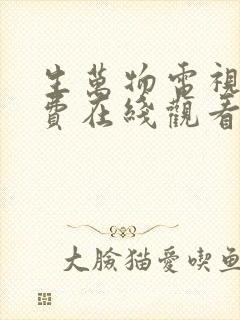 生萬物電視
費在綫觀看
大臉猫愛喫鱼